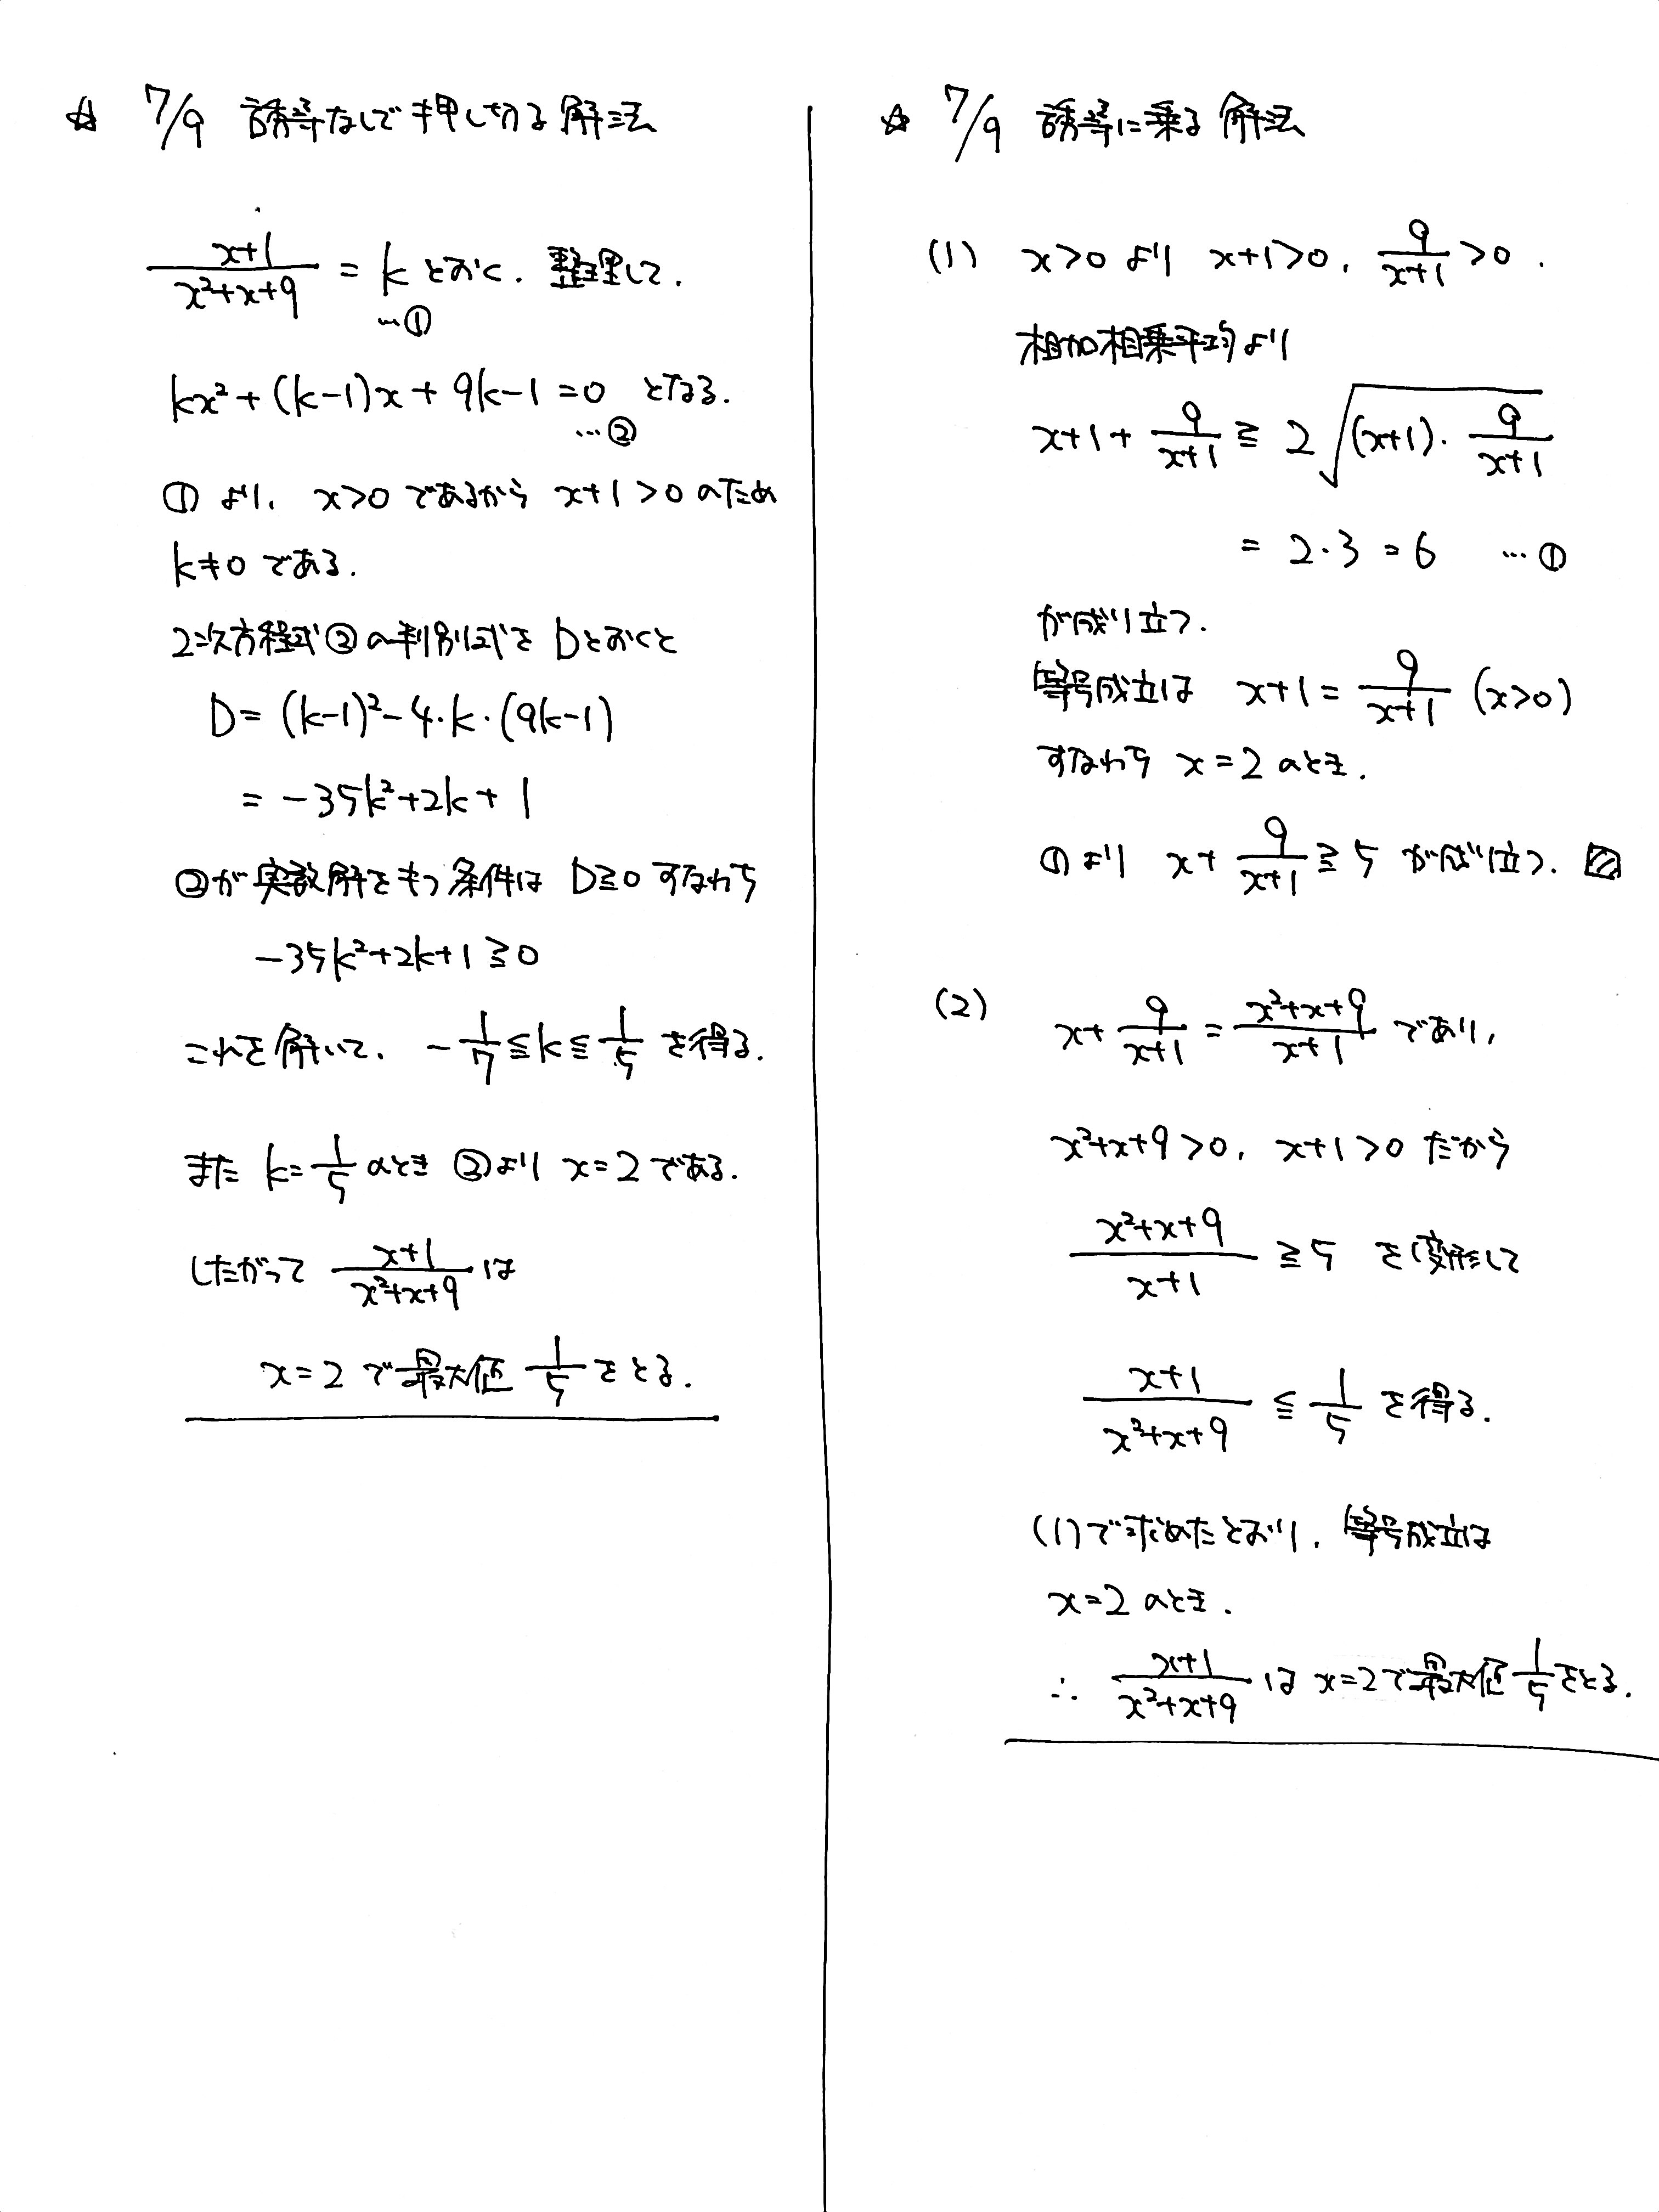 ☆ 7/9 誘導なしで押し切る解法
(x+1)/(x²+x+9) = k とおく. 整理して.
…①
kx²+(k-1)x+9k-1=0 となる.
…②
①より, x>0であるから x+1>0のため
k≠0である.
2次方程式②の判別式をDとおくと
D=(k-1)²-4・k・(9k-1)
= -35k²+2k+1
②が実数解をもつ条件は D≧0 すなわち
-35k²+2k+1≧0
これを解いて, -1/7≦k≦1/5 を得る.
また k=1/5 のとき ②より x=2である.
したがって (x+1)/(x²+x+9) は
x=2 で最大値 1/5 をとる.
☆ 7/9 誘導に乗る解法
(1) x>0 より x+1>0, 9/(x+1)>0.
相加相乗平均より
x+1+9/(x+1) ≧ 2√((x+1)・9/(x+1))
= 2・3 = 6 …①
が成り立つ.
等号成立は x+1=9/(x+1) (x>0)
すなわち x=2のとき.
①より x+9/(x+1)≧5 が成り立つ. ▨
(2) x+9/(x+1)=(x²+x+9)/(x+1) であり,
x²+x+9>0, x+1>0 だから
(x²+x+9)/(x+1) ≧5 を変形して
(x+1)/(x²+x+9) ≦ 1/5 を得る.
(1)で求めたとおり, 等号成立は
x=2のとき.
∴ (x+1)/(x²+x+9) は x=2で最大値 1/5 をとる.